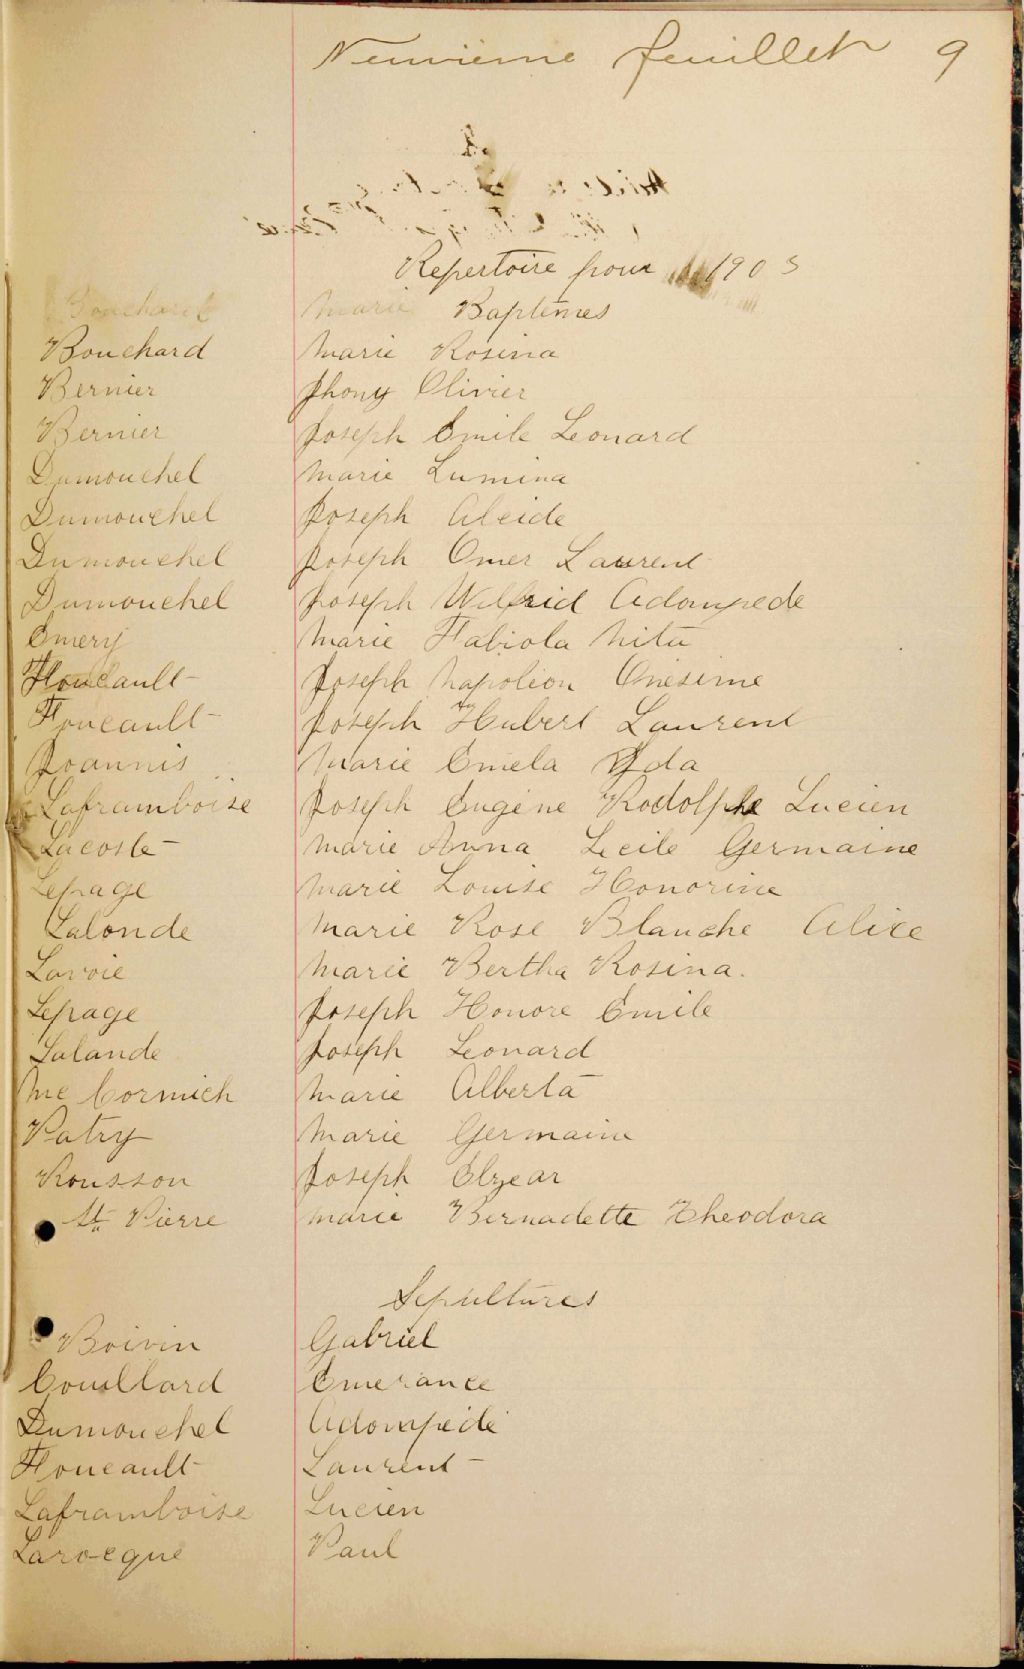 Neuvième feuillet 9
Repertoire pour 1903
Bouchard Marie Baptêmes
Bouchard Marie Rosina
Bernier Jhony Olivier
Bernier Joseph Emile Leonard
Dumouchel Marie Lumina
Dumouchel Joseph Alcide
Dumouchel Joseph Omer Laurent
Dumouchel Joseph Wilfrid Adompede
Emery Marie Fabiola Nita
Foucault Joseph Napoléon Onésime
Foucault Joseph Hubert Laurent
Joannis Marie Emela Ida
Laframboise Joseph Eugène Rodolphe Lucien
Lacoste Marie Anna Cecile Germaine
Lepage Marie Louise Honorine
Lalonde Marie Rose Blanche Alice
Lavoie Marie Bertha Rosina.
Lepage Joseph Honore Emile
Lalande Joseph Leonard
Mc Cormick Marie Alberta
Patry Marie Germaine
Rousson Joseph Elzear
St Pierre Marie Bernadette Theodora
Sepultures
Boivin Gabriel
Couillard Emerance
Dumouchel Adompède
Foucault Laurent
Laframboise Lucien
Larocque Paul